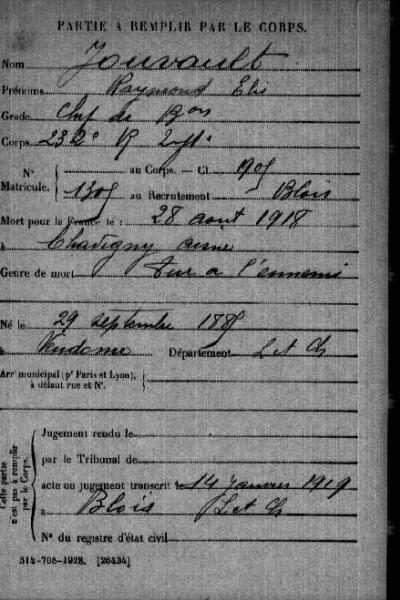 PARTIE A REMPLIR PAR LE CORPS.
Nom Jouvault
Prénoms Raymond Elie
Grade Chef de Bon
Corps 232e R Infie
N° Matricule. { au Corps. — Cl. 1905
1305 au Recrutement Blois
Mort pour la France le : 28 août 1918
à Chavigny Aisne
Genre de mort Tué à l'ennemi
Né le 29 septembre 1885
à Vendome Département L et Ch
Arrt municipal (pr Paris et Lyon), à défaut rue et N°.
Cette partie n'est pas à remplir par le Corps.
Jugement rendu le
par le Tribunal de
acte ou jugement transcrit le 14 janvier 1919
à Blois L et Ch
N° du registre d'état civil
314-708-1928. [26434]